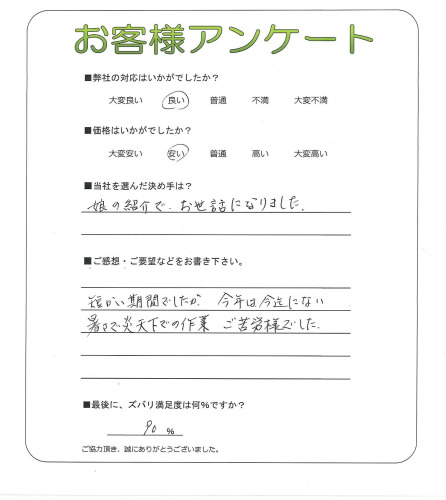 お客様アンケート
■弊社の対応はいかがでしたか？
大変良い 良い 普通 不満 大変不満
■価格はいかがでしたか？
大変安い 安い 普通 高い 大変高い
■当社を選んだ決め手は？
娘の紹介で、お世話になりました。
■ご感想・ご要望などをお書き下さい。
短かい期間でしたが 今年は今迄にない
暑さで炎天下での作業 ご苦労様でした。
■最後に、ズバリ満足度は何％ですか？
90 ％
ご協力頂き、誠にありがとうございました。